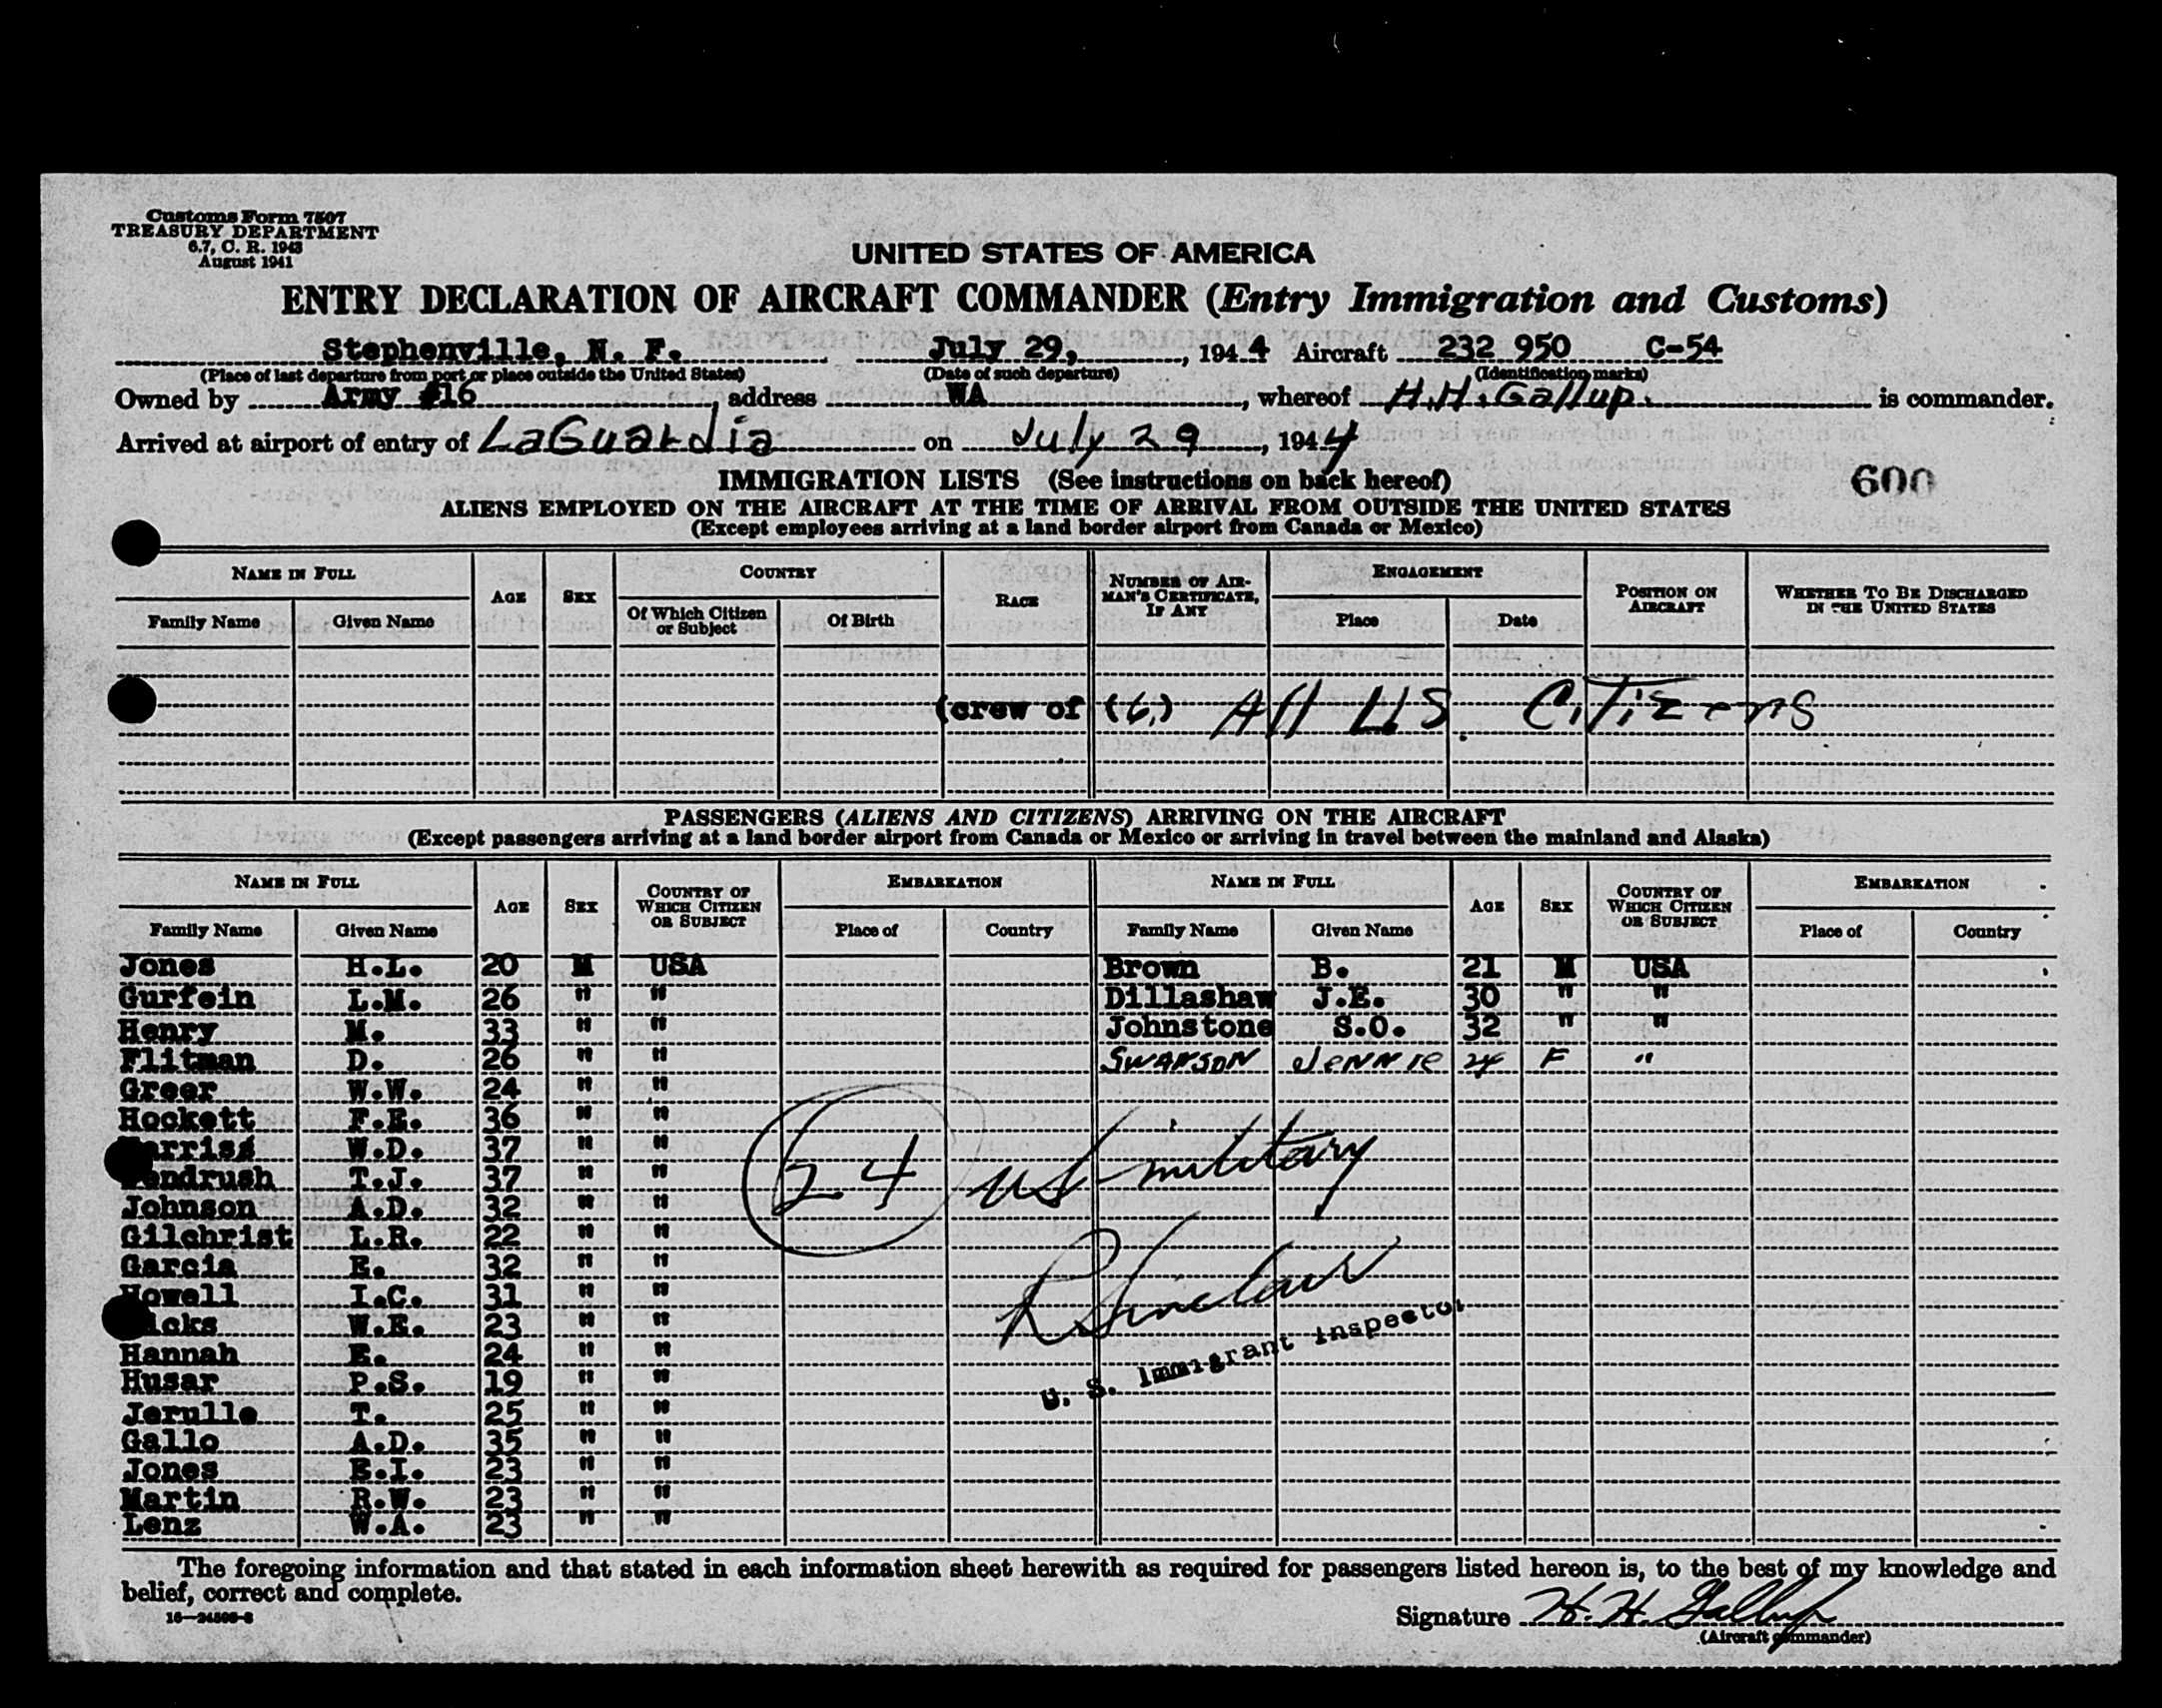 Customs Form 7507
TREASURY DEPARTMENT
6.7, C. R. 1943
August 1941
UNITED STATES OF AMERICA
ENTRY DECLARATION OF AIRCRAFT COMMANDER (Entry Immigration and Customs)
Stephenville, N. F. July 29, 1944 Aircraft 232 950 C-54
(Place of last departure from port or place outside the United States) (Date of such departure) (Identification marks)
Owned by Army #16, address WA, whereof H.H. Gallup. is commander.
Arrived at airport of entry of LaGuardia on July 29, 1944
IMMIGRATION LISTS (See instructions on back hereof)
600
ALIENS EMPLOYED ON THE AIRCRAFT AT THE TIME OF ARRIVAL FROM OUTSIDE THE UNITED STATES
(Except employees arriving at a land border airport from Canada or Mexico)
NAME IN FULL AGE SEX COUNTRY RACE NUMBER OF AIRMAN'S CERTIFICATE, IF ANY ENGAGEMENT POSITION ON AIRCRAFT WHETHER TO BE DISCHARGED IN THE UNITED STATES
Family Name Given Name Of Which Citizen or Subject Of Birth Place Date
(crew of (6) All U.S. Citizens
PASSENGERS (ALIENS AND CITIZENS) ARRIVING ON THE AIRCRAFT
(Except passengers arriving at a land border airport from Canada or Mexico or arriving in travel between the mainland and Alaska)
NAME IN FULL AGE SEX COUNTRY OF WHICH CITIZEN OR SUBJECT EMBARKATION NAME IN FULL AGE SEX COUNTRY OF WHICH CITIZEN OR SUBJECT EMBARKATION
Family Name Given Name Place of Country Family Name Given Name Place of Country
Jones H.L. 20 M USA Brown B. 21 M USA
Gurfein L.M. 26 " " Dillashaw J.E. 30 " "
Henry M. 33 " " Johnstone S.O. 32 " "
Flitman D. 26 " " SWANSON JENNIE 24 F "
Greer W.W. 24 " "
Hockett F.E. 36 " "
W.D. 37 " "
T.J. 37 " "
Johnson A.D. 32 " "
24 US military
Gilchrist L.R. 22 " "
Garcia E. 32 " "
Howell I.C. 31 " "
R Sinclair
W.E. 23 " "
U. S. Immigrant Inspector
Hannah E. 24 " "
Husar P.S. 19 " "
Jerulle T. 25 " "
Gallo A.D. 35 " "
Jones E.I. 23 " "
Martin R.W. 23 " "
Lenz W.A. 23 " "
The foregoing information and that stated in each information sheet herewith as required for passengers listed hereon is, to the best of my knowledge and
belief, correct and complete.
Signature H. H. Gallup
(Aircraft commander)